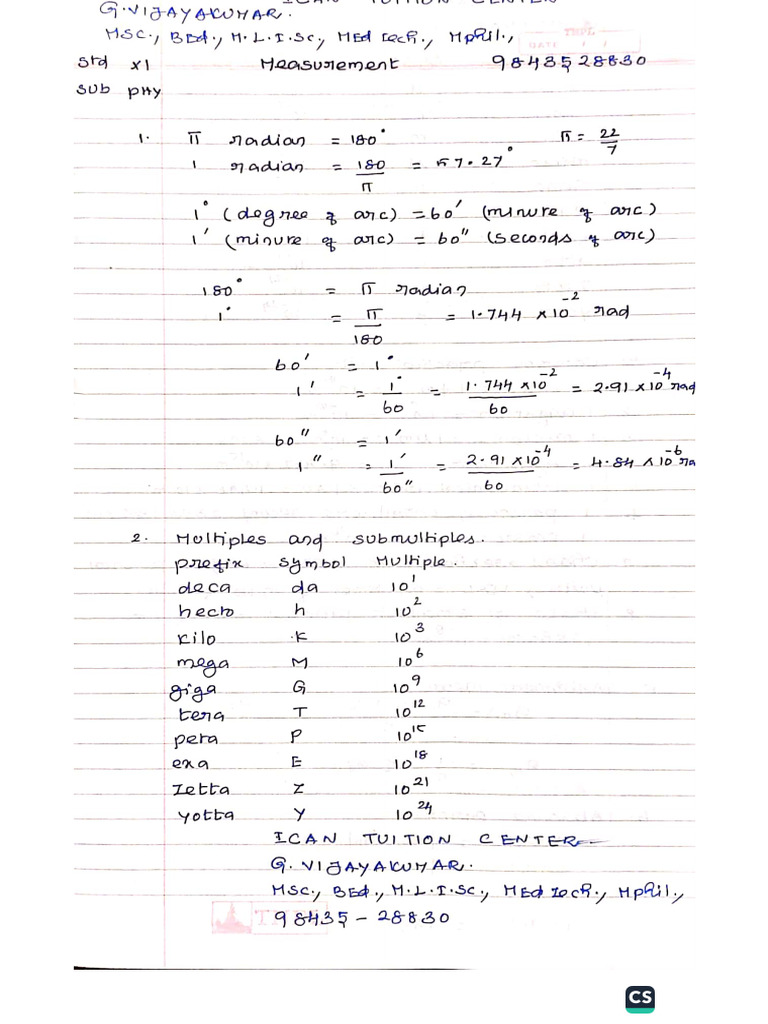 ICAN TUITION CENTER
G. VIJAYAKUMAR.
MSC., BEd., M.L.I.SC., MEd Tech., Mphil.,
DATE / /
Std XI Measurement 9843528830
Sub PHY
1. π radian = 180° π = 22/7
1 radian = 180/π = 57.27°
1° (degree of arc) = 60′ (minute of arc)
1′ (minute of arc) = 60″ (seconds of arc)
180° = π radian
1° = π/180 = 1.744 × 10⁻² rad
60′ = 1°
1′ = 1°/60 = 1.744 × 10⁻²/60 = 2.91 × 10⁻⁴ rad
60″ = 1′
1″ = 1′/60″ = 2.91 × 10⁻⁴/60 = 4.84 × 10⁻⁶ ra
2. Multiples and submultiples.
prefix symbol Multiple.
deca da 10¹
hecto h 10²
kilo K 10³
mega M 10⁶
giga G 10⁹
tera T 10¹²
peta P 10¹⁵
exa E 10¹⁸
zetta Z 10²¹
yotta Y 10²⁴
ICAN TUITION CENTER
G. VIJAYAKUMAR.
MSC., BEd., M.L.I.SC., MEd Tech., Mphil.,
98435-28830
CS